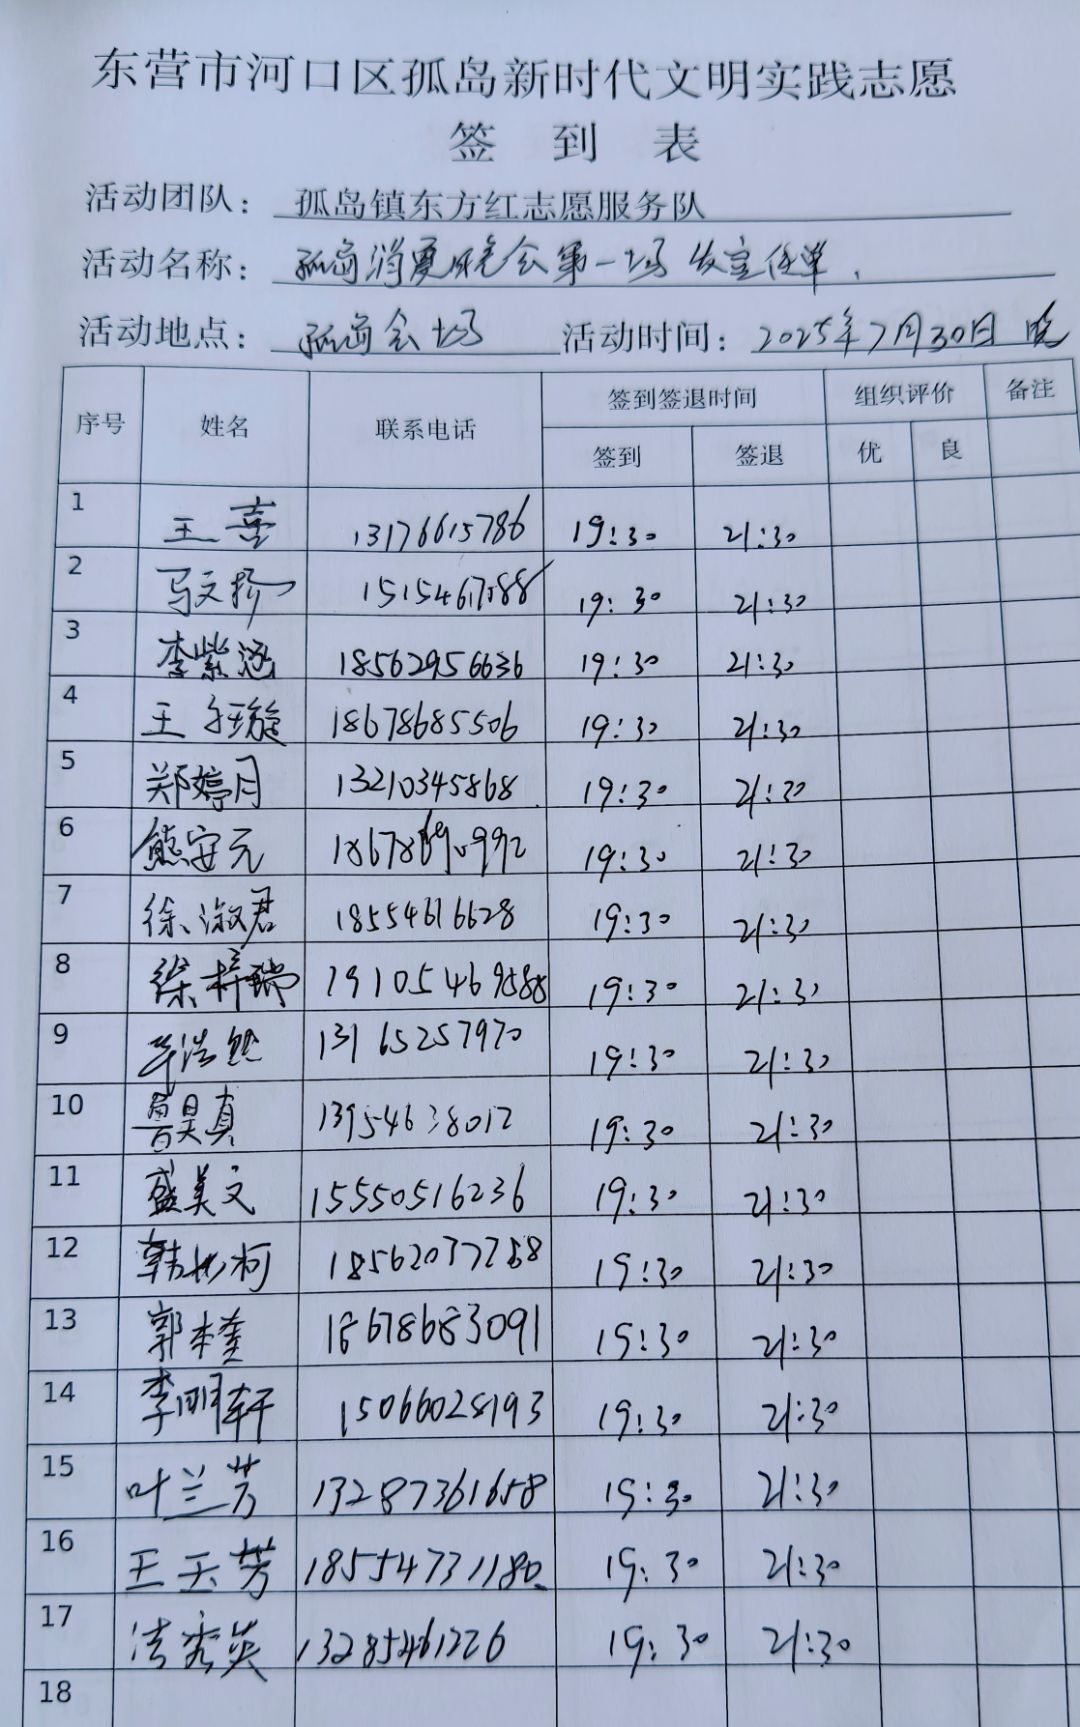 东营市河口区孤岛新时代文明实践志愿
签到表
活动团队：孤岛镇东方红志愿服务队
活动名称：孤岛消夏晚会第一场 发宣传单.
活动地点：孤岛会场 活动时间：2025年7月30日 晚
序号 姓名 联系电话 签到签退时间 组织评价 备注
签到 签退 优 良
1 王喜 13176615786 19:30 21:30
2 马文 19:30 21:30
3 李紫涵 18562956636 19:30 21:30
4 王 璇 18678685506 19:30 21:30
5 郑婷月 13210345868 19:30 21:30
6 熊安元 19:30 21:30
7 徐淑君 18554616628 19:30 21:30
8 徐梓 19:30 21:30
9 浩然 13165257970 19:30 21:30
10 昊真 13954638012 19:30 21:30
11 盛美文 15550516236 19:30 21:30
12 韩 柯 19:30 21:30
13 郭本奎 18678683091 19:30 21:30
14 李明轩 15066028193 19:30 21:30
15 叶兰芳 13287361658 19:30 21:30
16 王玉芳 18554731180 19:30 21:30
17 秀英 13285461226 19:30 21:30
18